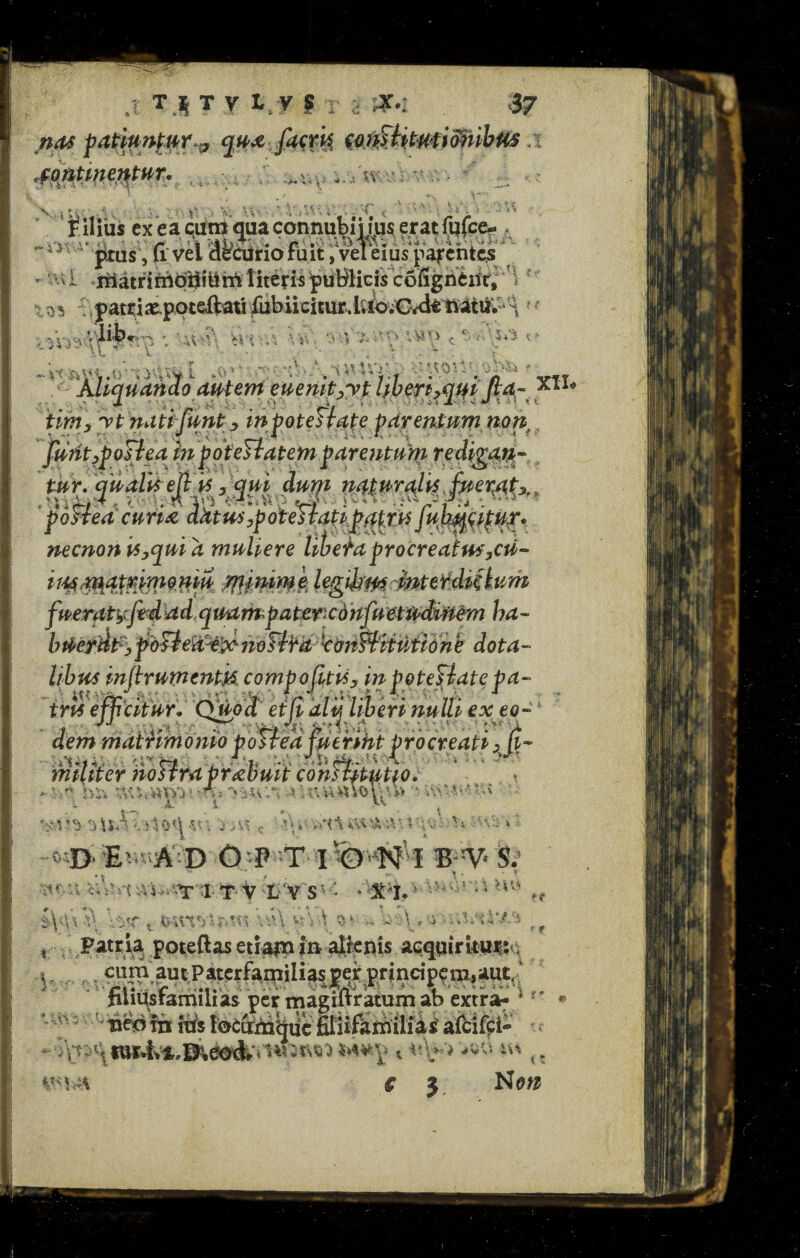 TITVLVS X. 37
nas patiuntur, quæ sacris constitutionibus
continentur.
Filius ex ea cum qua connubij ius erat susce-
ptus, si vel decurio fuit, vel eius parentes
matrimonium literis publicis cōsignēnt,
patriæ potestati subiicitur. l. 10. C. de natu.
lib.
Aliquando autem euenit, vt liberi, qui sta- XII.
tim, vt nati sunt, in potestate parentum non
sunt, postea in potestatem parentum redigan-
tur. qualis est is, qui dum naturalis fuerat,
postea curiæ datus, potestati patris subijcitur.
necnon is, qui à muliere libera procreatus, cu-
ius matrimoniū minimè legibus interdictum
fuerat, sed ad quam pater consuetudinem ha-
buerat, postea ex nostra constitutione dota-
libus instrumentis compositis, in potestate pa-
tris efficitur. Quod etsi alij liberi nulli ex eo-
dem matrimonio postea fuerint procreati, si-
militer nostra præbuit constitutio.
DE ADOPTIONIBVS.
TITVLVS XI.
Patria potestas etiam in alienis acquiritur:
cum aut Paterfamilias per principem, aut
filiusfamilias per magistratum ab extra-
neo in ius locumque filiifamilias adscisci-
tur. h. t. D. eod.
e 3 Non